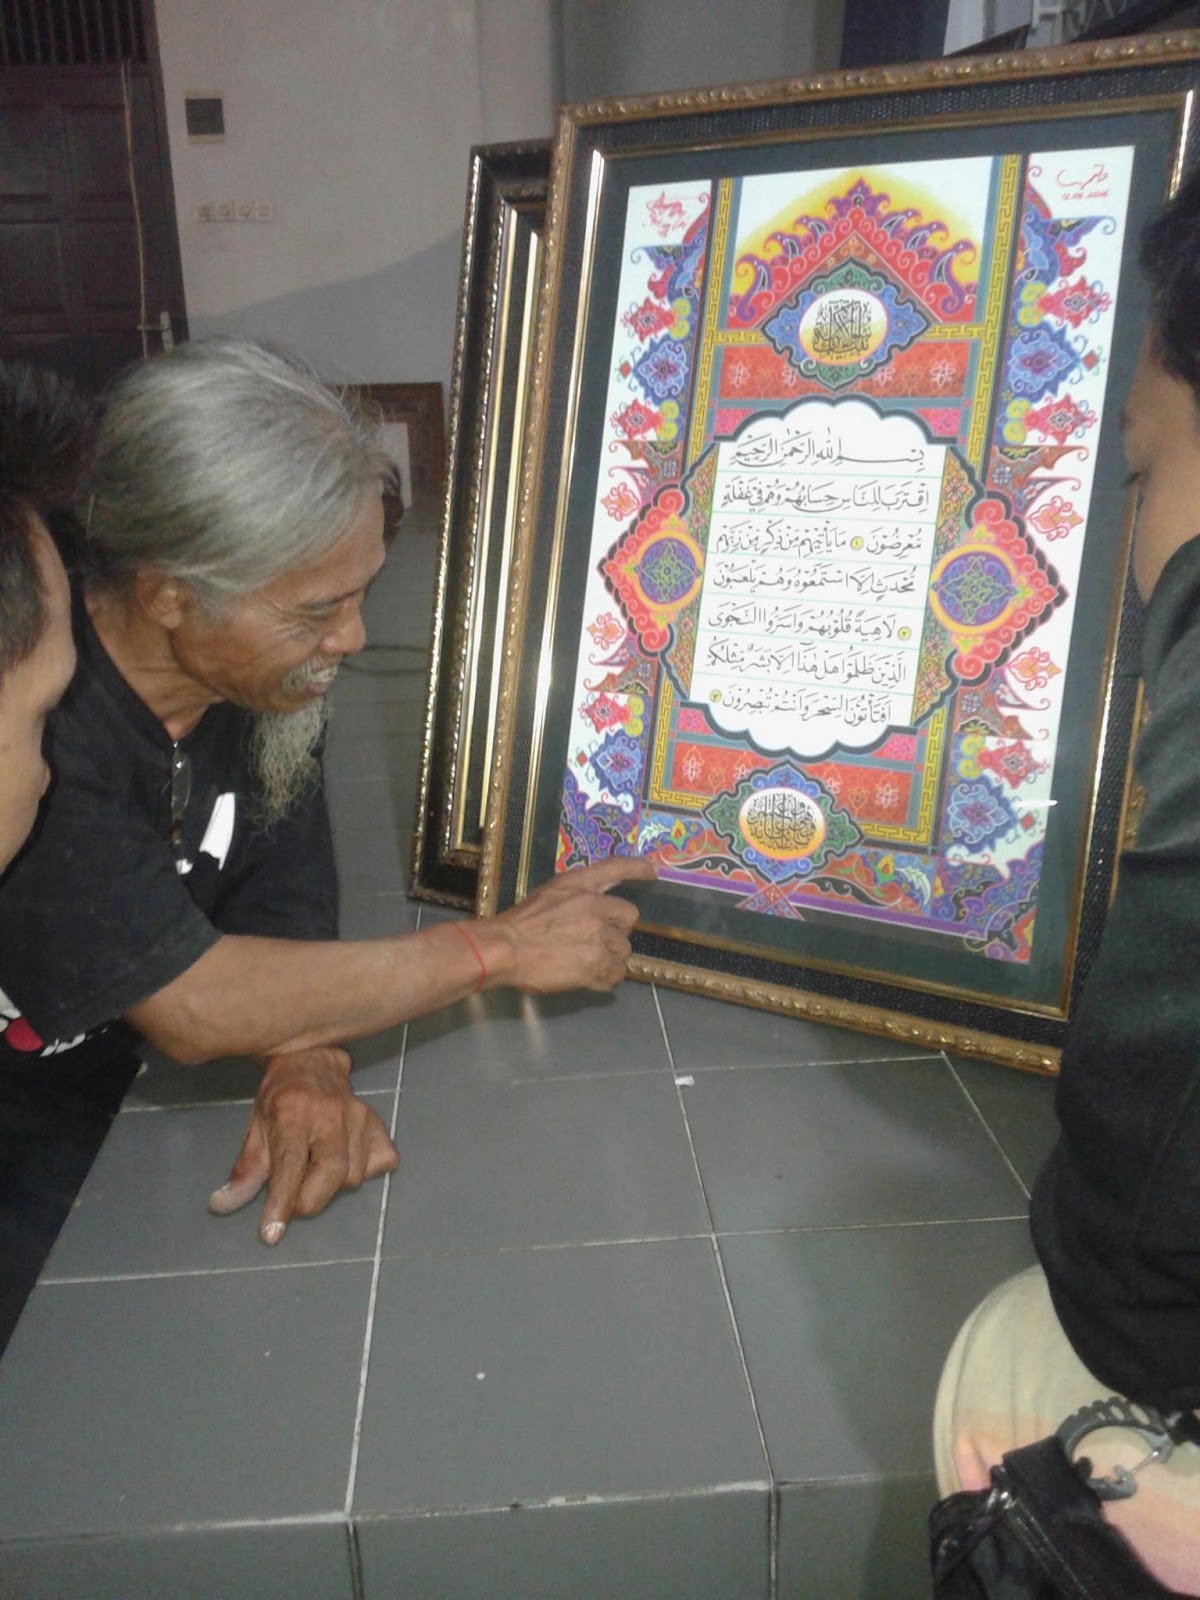 بِسْمِ اللهِ الرَّحْمٰنِ الرَّحِيْمِ
اِقْتَرَبَ لِلنَّاسِ حِسَابُهُمْ وَهُمْ فِيْ غَفْلَةٍ
مُعْرِضُوْنَ ١ مَا يَأْتِيْهِمْ مِنْ ذِكْرٍ مِنْ رَبِّهِمْ
مُحْدَثٍ اِلَّا اسْتَمَعُوْهُ وَهُمْ يَلْعَبُوْنَ
٢ لَاهِيَةً قُلُوْبُهُمْ وَاَسَرُّوا النَّجْوَى
الَّذِيْنَ ظَلَمُوْا هَلْ هٰذَا اِلَّا بَشَرٌ مِثْلُكُمْ
اَفَتَأْتُوْنَ السِّحْرَ وَاَنْتُمْ تُبْصِرُوْنَ ٣